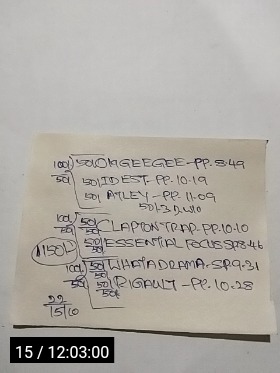 100) 50) OMGEEGEE-PP.8.49
50 50) IDEST-PP.10.19
50) ATLEY-PP.11.09
100) 50) CLAPTONTRAP.PP.10.10
50 50) ESSENTIALFOCUSSP.8.46
1150
100) 50) WHATADRAMA-SP.9.31
50) RIGAULT-PP.10.28
22
15/6
15 / 12:03:00